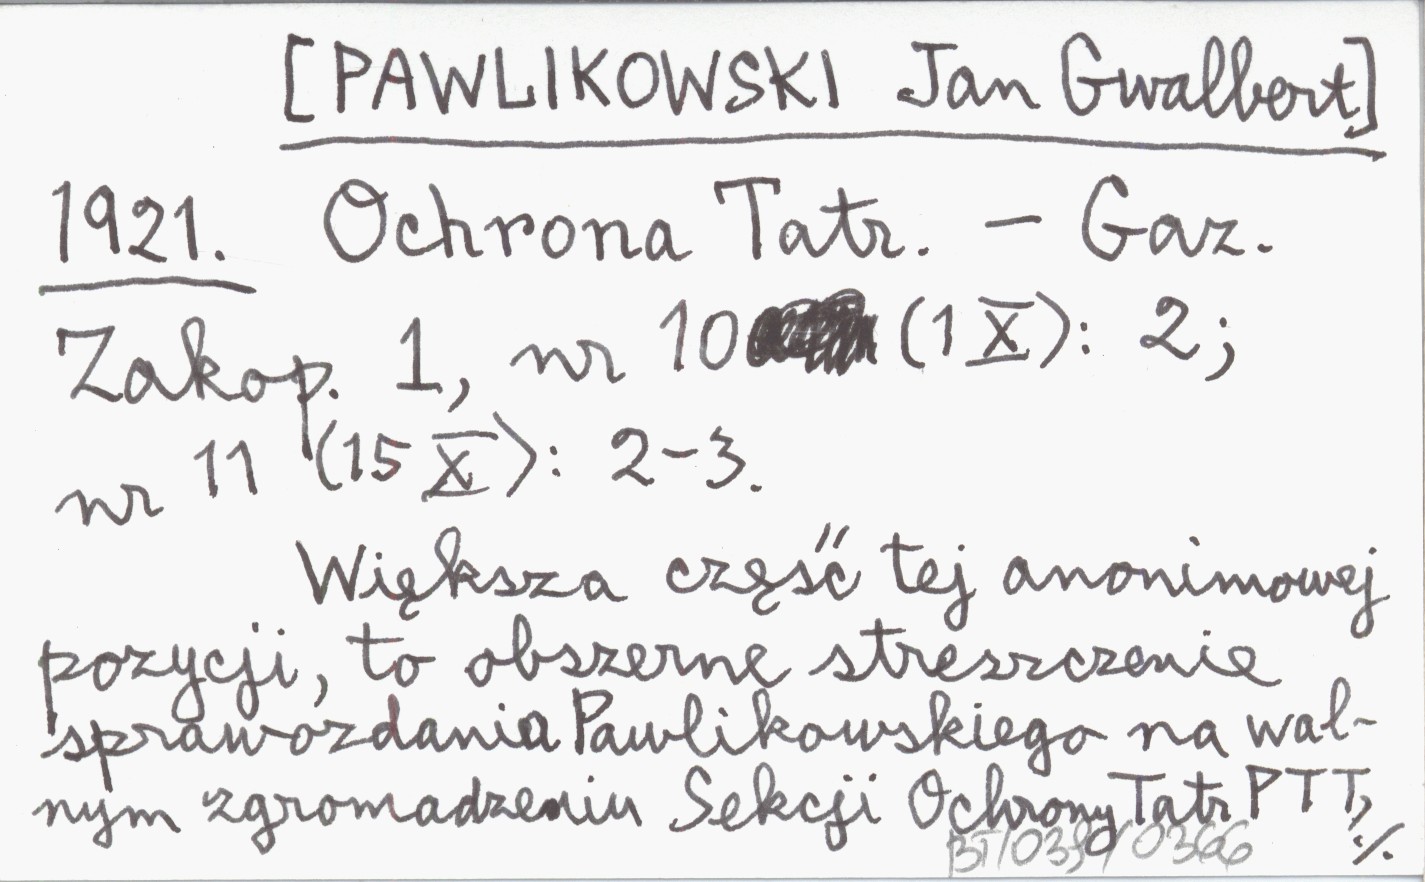 [PAWLIKOWSKI Jan Gwalbert]
1921. Ochrona Tatr. – Gaz.
Zakop. 1, nr 10 (1 X): 2;
nr 11 (15 X): 2-3.
Większa część tej anonimowej
pozycji, to obszerne streszczenie
sprawozdania Pawlikowskiego na wal-
nym zgromadzeniu Sekcji Ochrony Tatr PTT,
./.